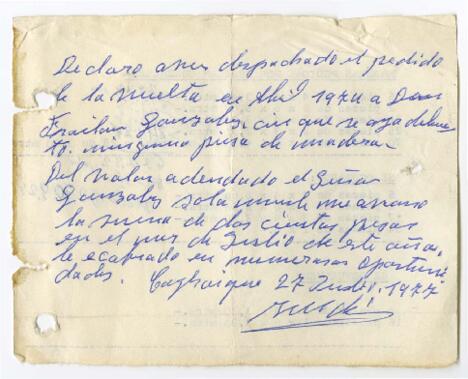 Declaro aver despachado el pedido
de la vuelta en Abril 1974 a Don
Froilan Gonzales, sin que se aya debuel
to. ninguna piesa de madera.
Del valor adeudado el Señor
Gonzales sola mente me anano
la suma de dos cientos pesos
en el mes de Julio de este año,
le e cobrado en numerosas oportuni
dades. 27 Junio, 1977